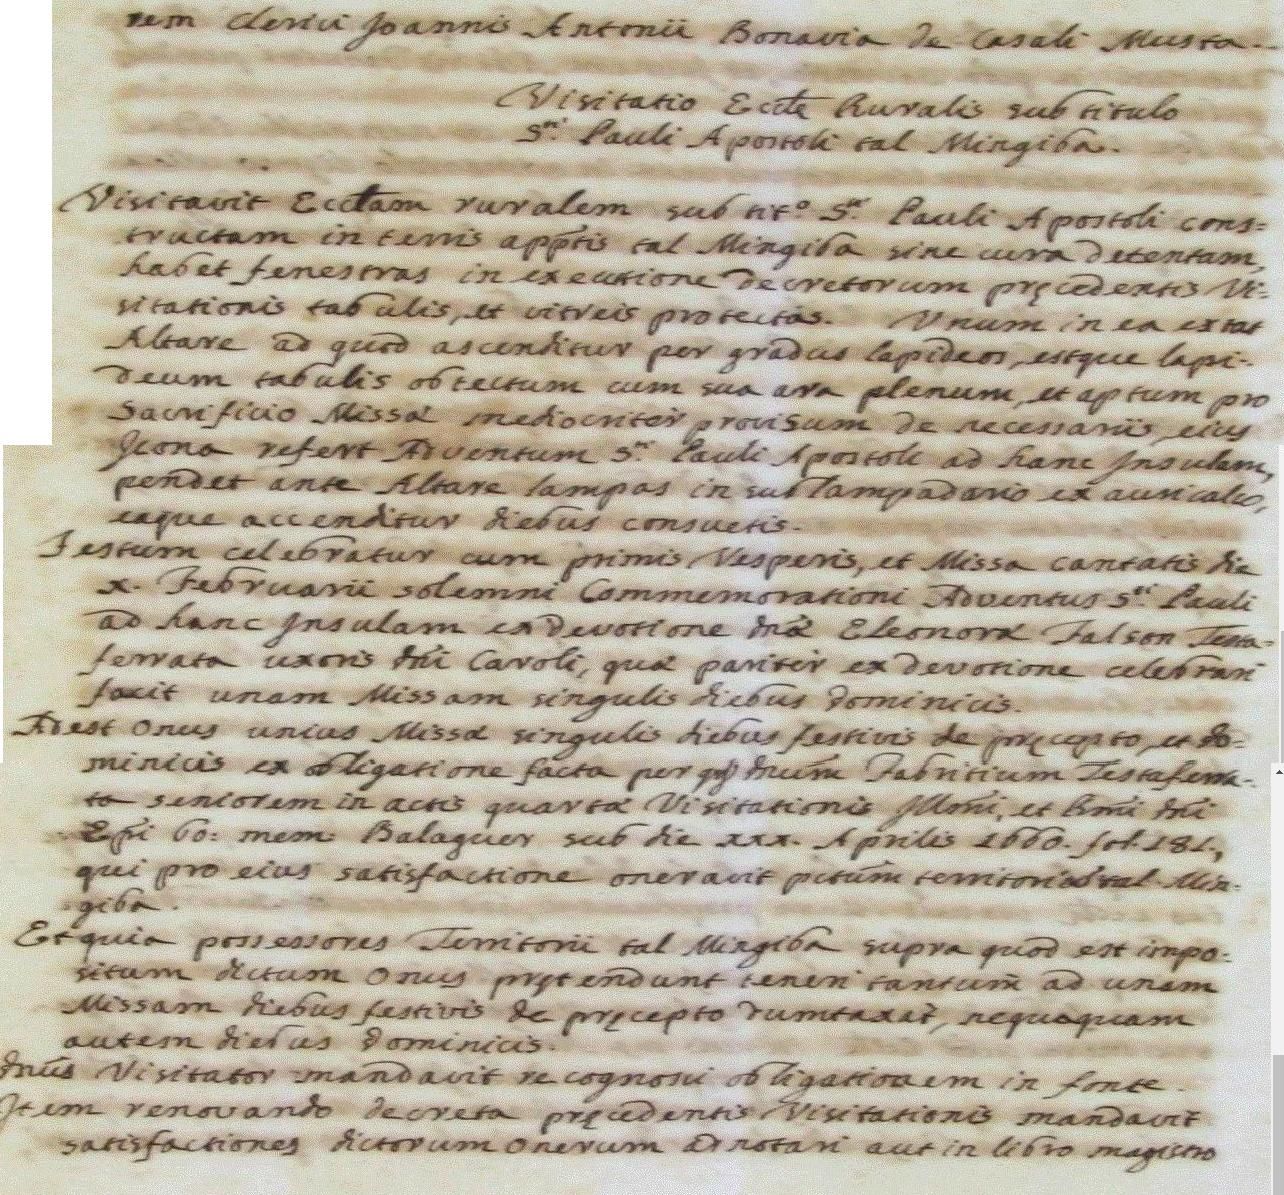 rem Clerici Joannis Antonii Bonavia de Casali Musta.
Visitatio Eccłæ Ruralis sub titulo
S.ti Pauli Apostoli tal Mingiba.
Visitavit Eccłam ruralem sub tit.o S.ti Pauli Apostoli cons=
tructam in terris appt̃is tal Mingiba sine cura detentam,
habet fenestras in executione decretorum pręcedentis Vi=
sitationis tabulis, et vitreis protectas. Unum in ea extat
Altare ad quod ascenditur per gradus lapideos, estque lapi-
deum tabulis obtectum cum sua ara plenum, et aptum pro
Sacrificio Missæ mediocriter provisum de necessariis, eius
Icona refert Adventum S.ti Pauli Apostoli ad hanc Insulam,
pendet ante Altare lampas in sub lampadario ex auricalco,
eaque accenditur diebus consuetis.
Festum celebratur cum primis Vesperis, et Missa cantatis die
x. Februarii solemni Commemorationi Adventus S.ti Pauli
ad hanc Insulam ex devotione dn̄æ Eleonoræ Falson Testa=
ferrata uxoris dn̄i Caroli, quæ pariter ex devotione celebrari
facit unam Missam singulis diebus dominicis.
Adest onus unius Missæ singulis diebus festivis de pręcepto, et do=
minicis ex obligatione facta per qd̄ dnūm Fabritium Testaferra=
ta seniorem in actis quartæ Visitationis Illmī, et Rmī dn̄i
Ep̄i bo: mem: Balaguer sub die xxx. Aprilis 1660. fol. 181.,
qui pro eius satisfactione oneravit pttūm territorium tal Min=
giba.
Et quia possessores Territorii tal Mingiba supra quod est impo=
situm dictum onus prętendunt teneri tantum ad unam
Missam diebus festivis de pręcepto dumtaxat, nequaquam
autem diebus dominicis.
Dnūs Visitator mandavit recognosci obligationem in fonte.
Item renovando decreta pręcedentis Visitationis mandavit
satisfactiones dictorum onerum adnotari aut in libro magistro